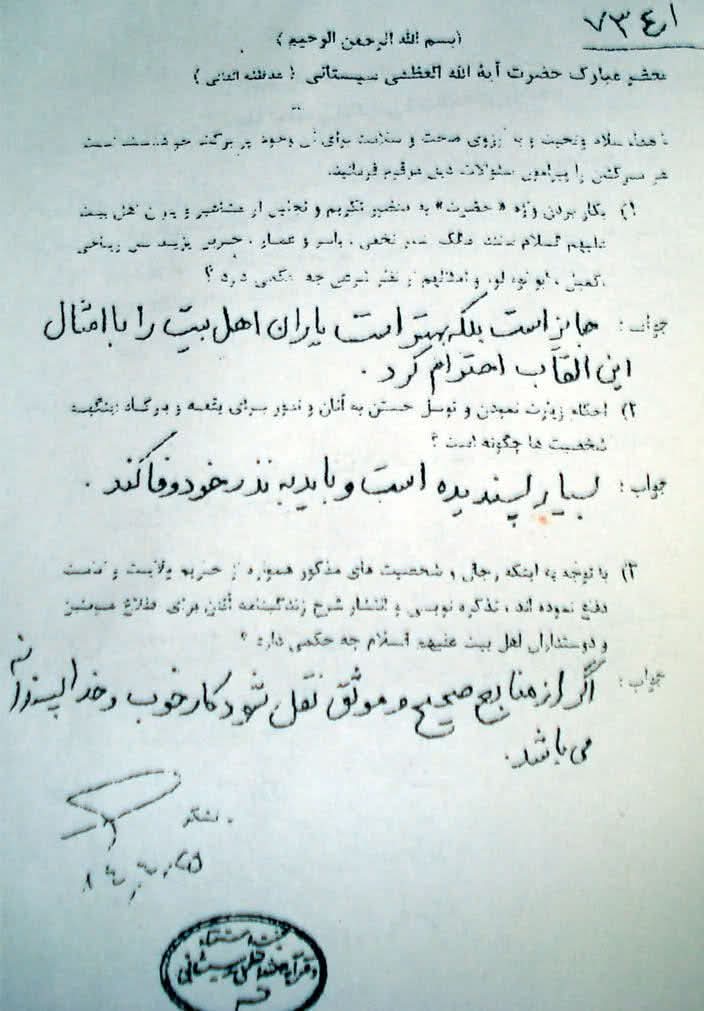 ۷۳۴۱
(بسم الله الرحمن الرحیم)
محضر مبارک حضرت آیة الله العظمی سیستانی (مدظله العالی)
با اهداء سلام و تحیت و به آرزوی صحت و سلامت برای آن وجود پر برکت خواهشمند است
را پیرامون سئوالات ذیل مرقوم فرمائید.
۱) بکار بردن واژه «حضرت» به منظور تکریم و تجلیل از مشاهیر و یاران اهل بیت
علیهم السلام مانند مالک اشتر نخعی، یاسر و عمار، حر بن یزید بن ریاحی
، کمیل، و امثالهم از نظر شرعی چه حکمی دارد؟
جواب: جایز است بلکه بهتر است یاران اهل بیت را با امثال
این القاب احترام کرد.
۲) احکام زیارت نمودن و توسل جستن به آنان و نذور برای بقعه و بارگاه اینگونه
شخصیت ها چگونه است؟
جواب: بسیار پسندیده است و باید به نذر خود وفا کند.
۳) با توجه به اینکه رجال و شخصیت های مذکور همواره از حریم ولایت و امامت
دفاع نموده اند، تذکره نویسی و انتشار شرح زندگینامه آنان برای اطلاع مومنین
و دوستداران اهل بیت علیهم السلام چه حکمی دارد؟
جواب: اگر از منابع صحیح و موثق نقل شود کار خوب و خدا پسندانه
می باشد.
تشکر
دفتر آیة الله العظمی سیستانی
قم